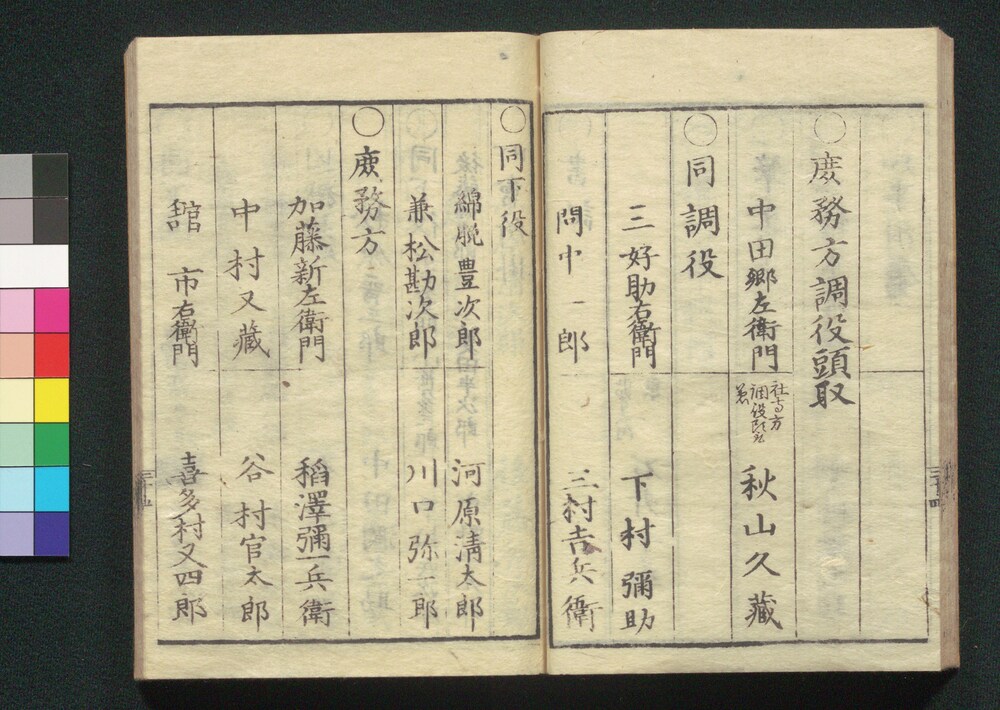 ○廣務方調役頭取
中田郷左衛門
社寺方
調役頭取
兼
秋山久藏
○同調役
三好助右衛門
下村彌助
問中一郎
三村吉兵衛
○同下役
綿脱豊次郎
河原淸太郎
兼松勘次郎
川口弥一郎
○廣務方
加藤新左衛門
稻澤彌一兵衛
中村又藏
谷村官太郎
舘市右衛門
喜多村又四郎